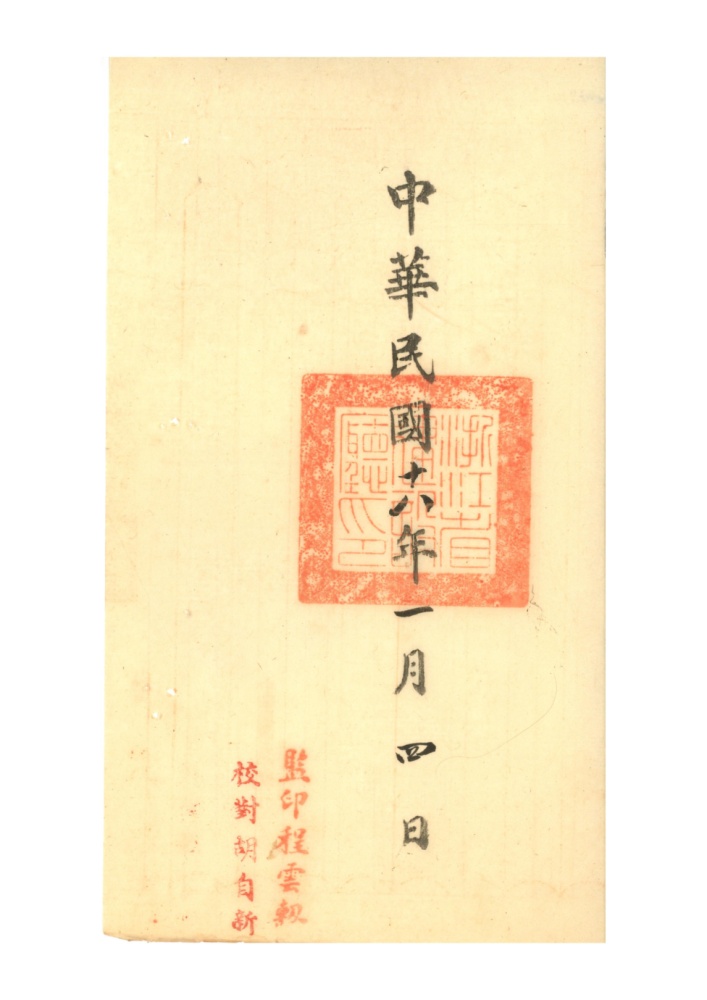 中華民國十八年一月四日
浙江省
廳印
監印程雲
校對胡自新